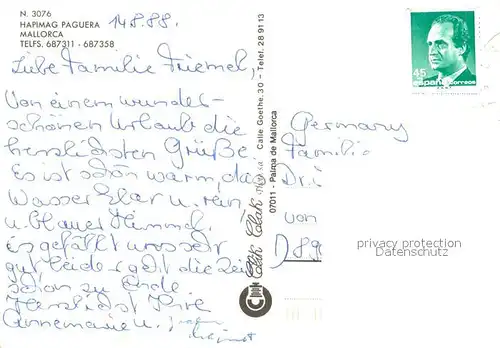 N. 3076
HAPIMAG PAGUERA
MALLORCA
TELFS. 687311 - 687358
14.8.88.
Liebe Familie Friemel,
Von einem wunder-
schönen Urlaub die
herzlichsten Grüße.
Es ist schön warm, das
Wasser klar u. rein
u. blauer Himmel.
es gefällt uns sehr
gut leider geht die Zeit
schon zu Ende
Herzlichst Ihre
Annemarie u.
Clik Clak
Calle Goethe, 30 - Telef. 28 91 13
07011 - Palma de Mallorca
45
españa
correos
Germany
Familie
Dr.
von
D 89
privacy protection
AnsichtskartenVersand.com